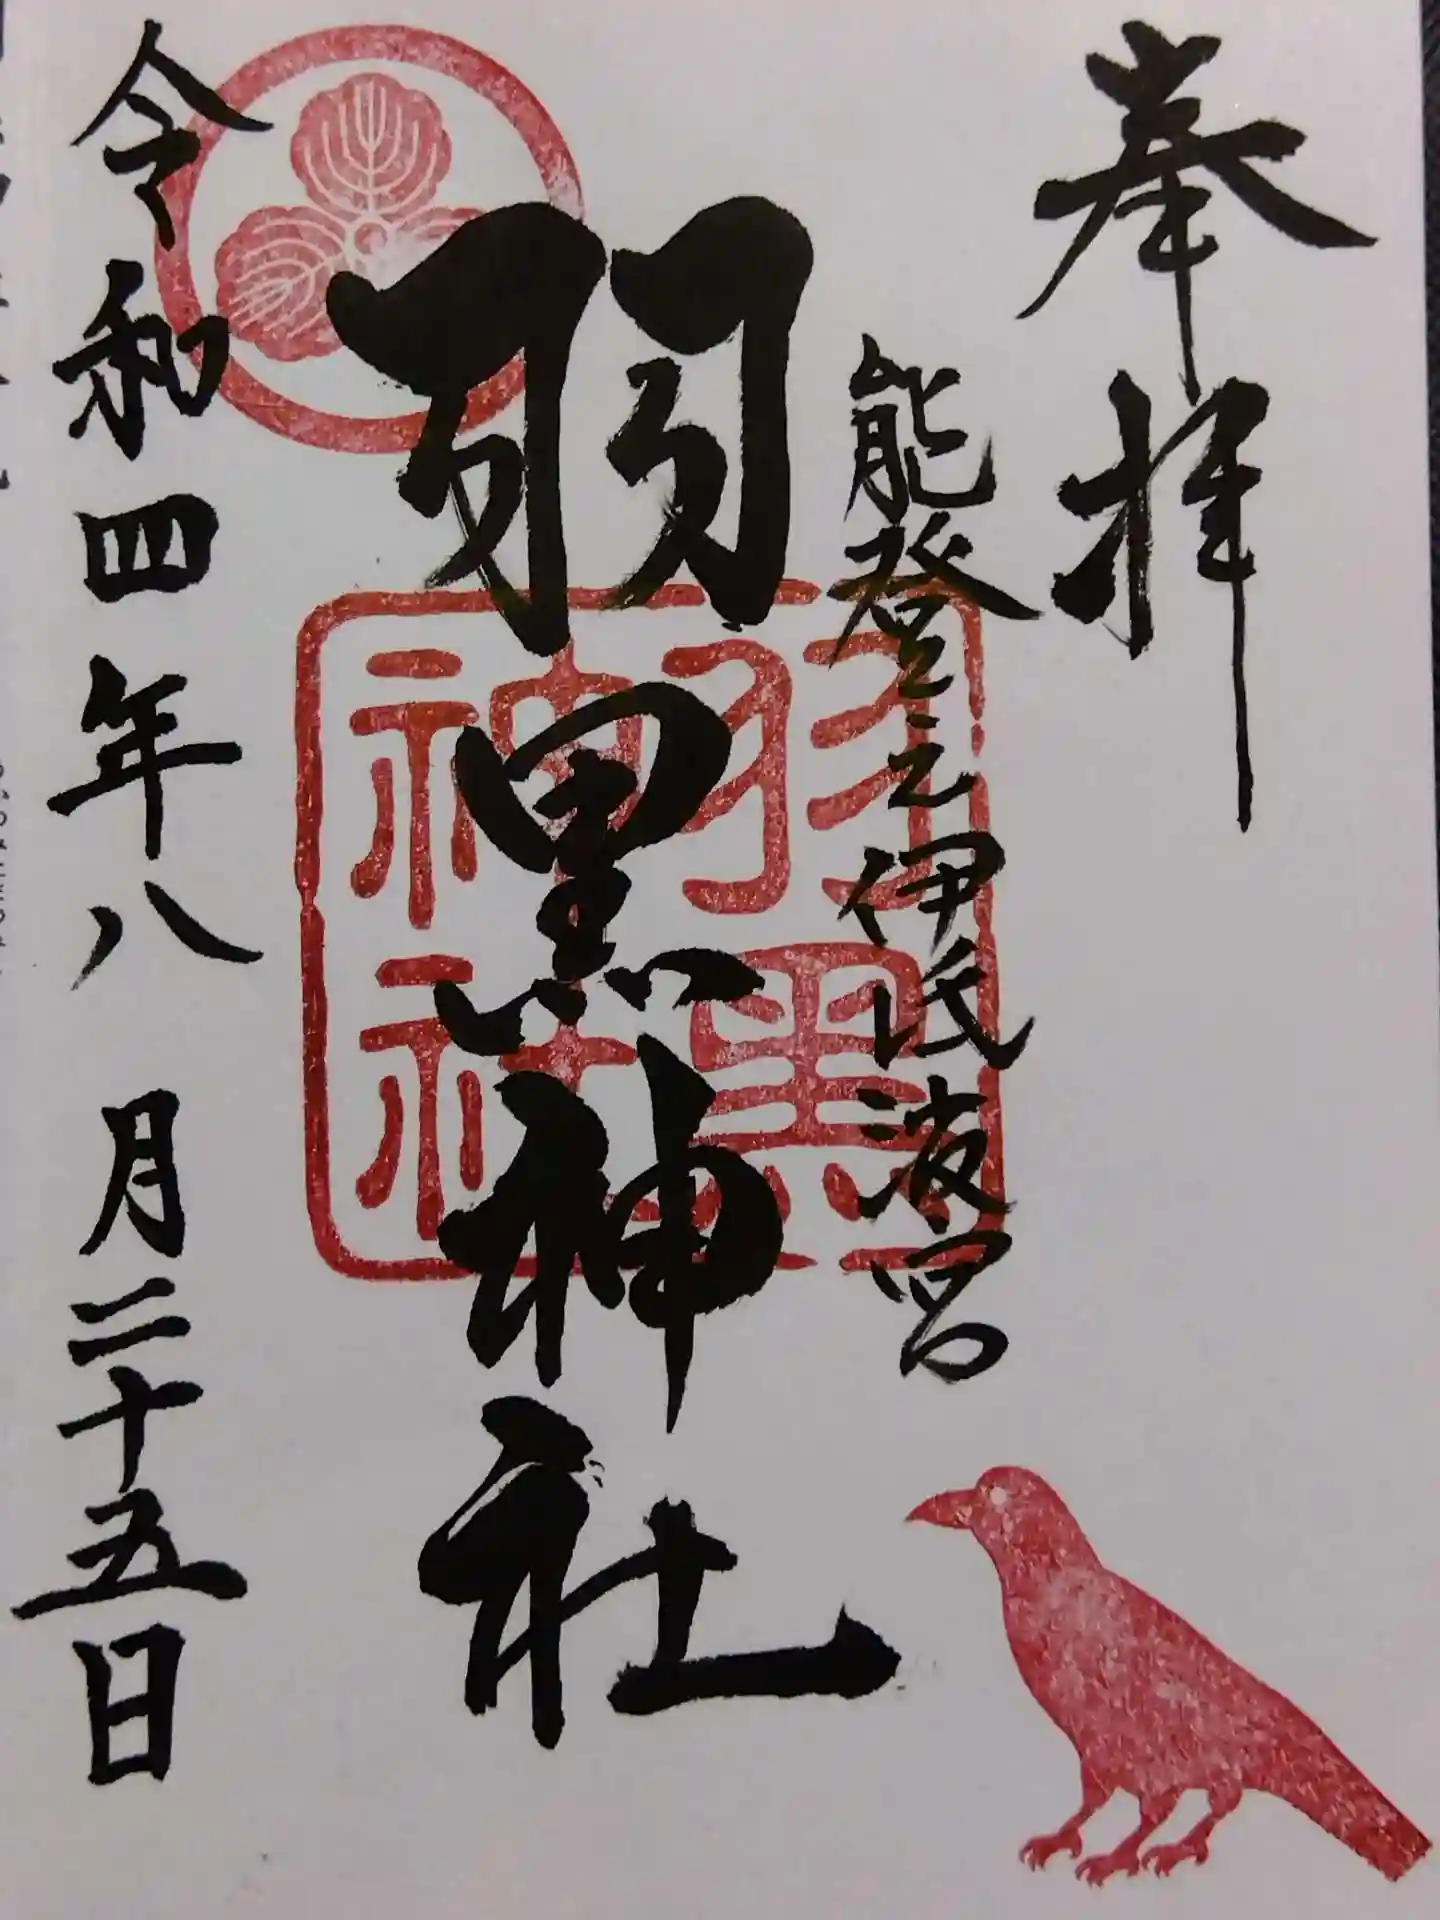 奉拝
能登之伊氏波宮
羽黒神社
羽黒
神社
令和四年八月二十五日